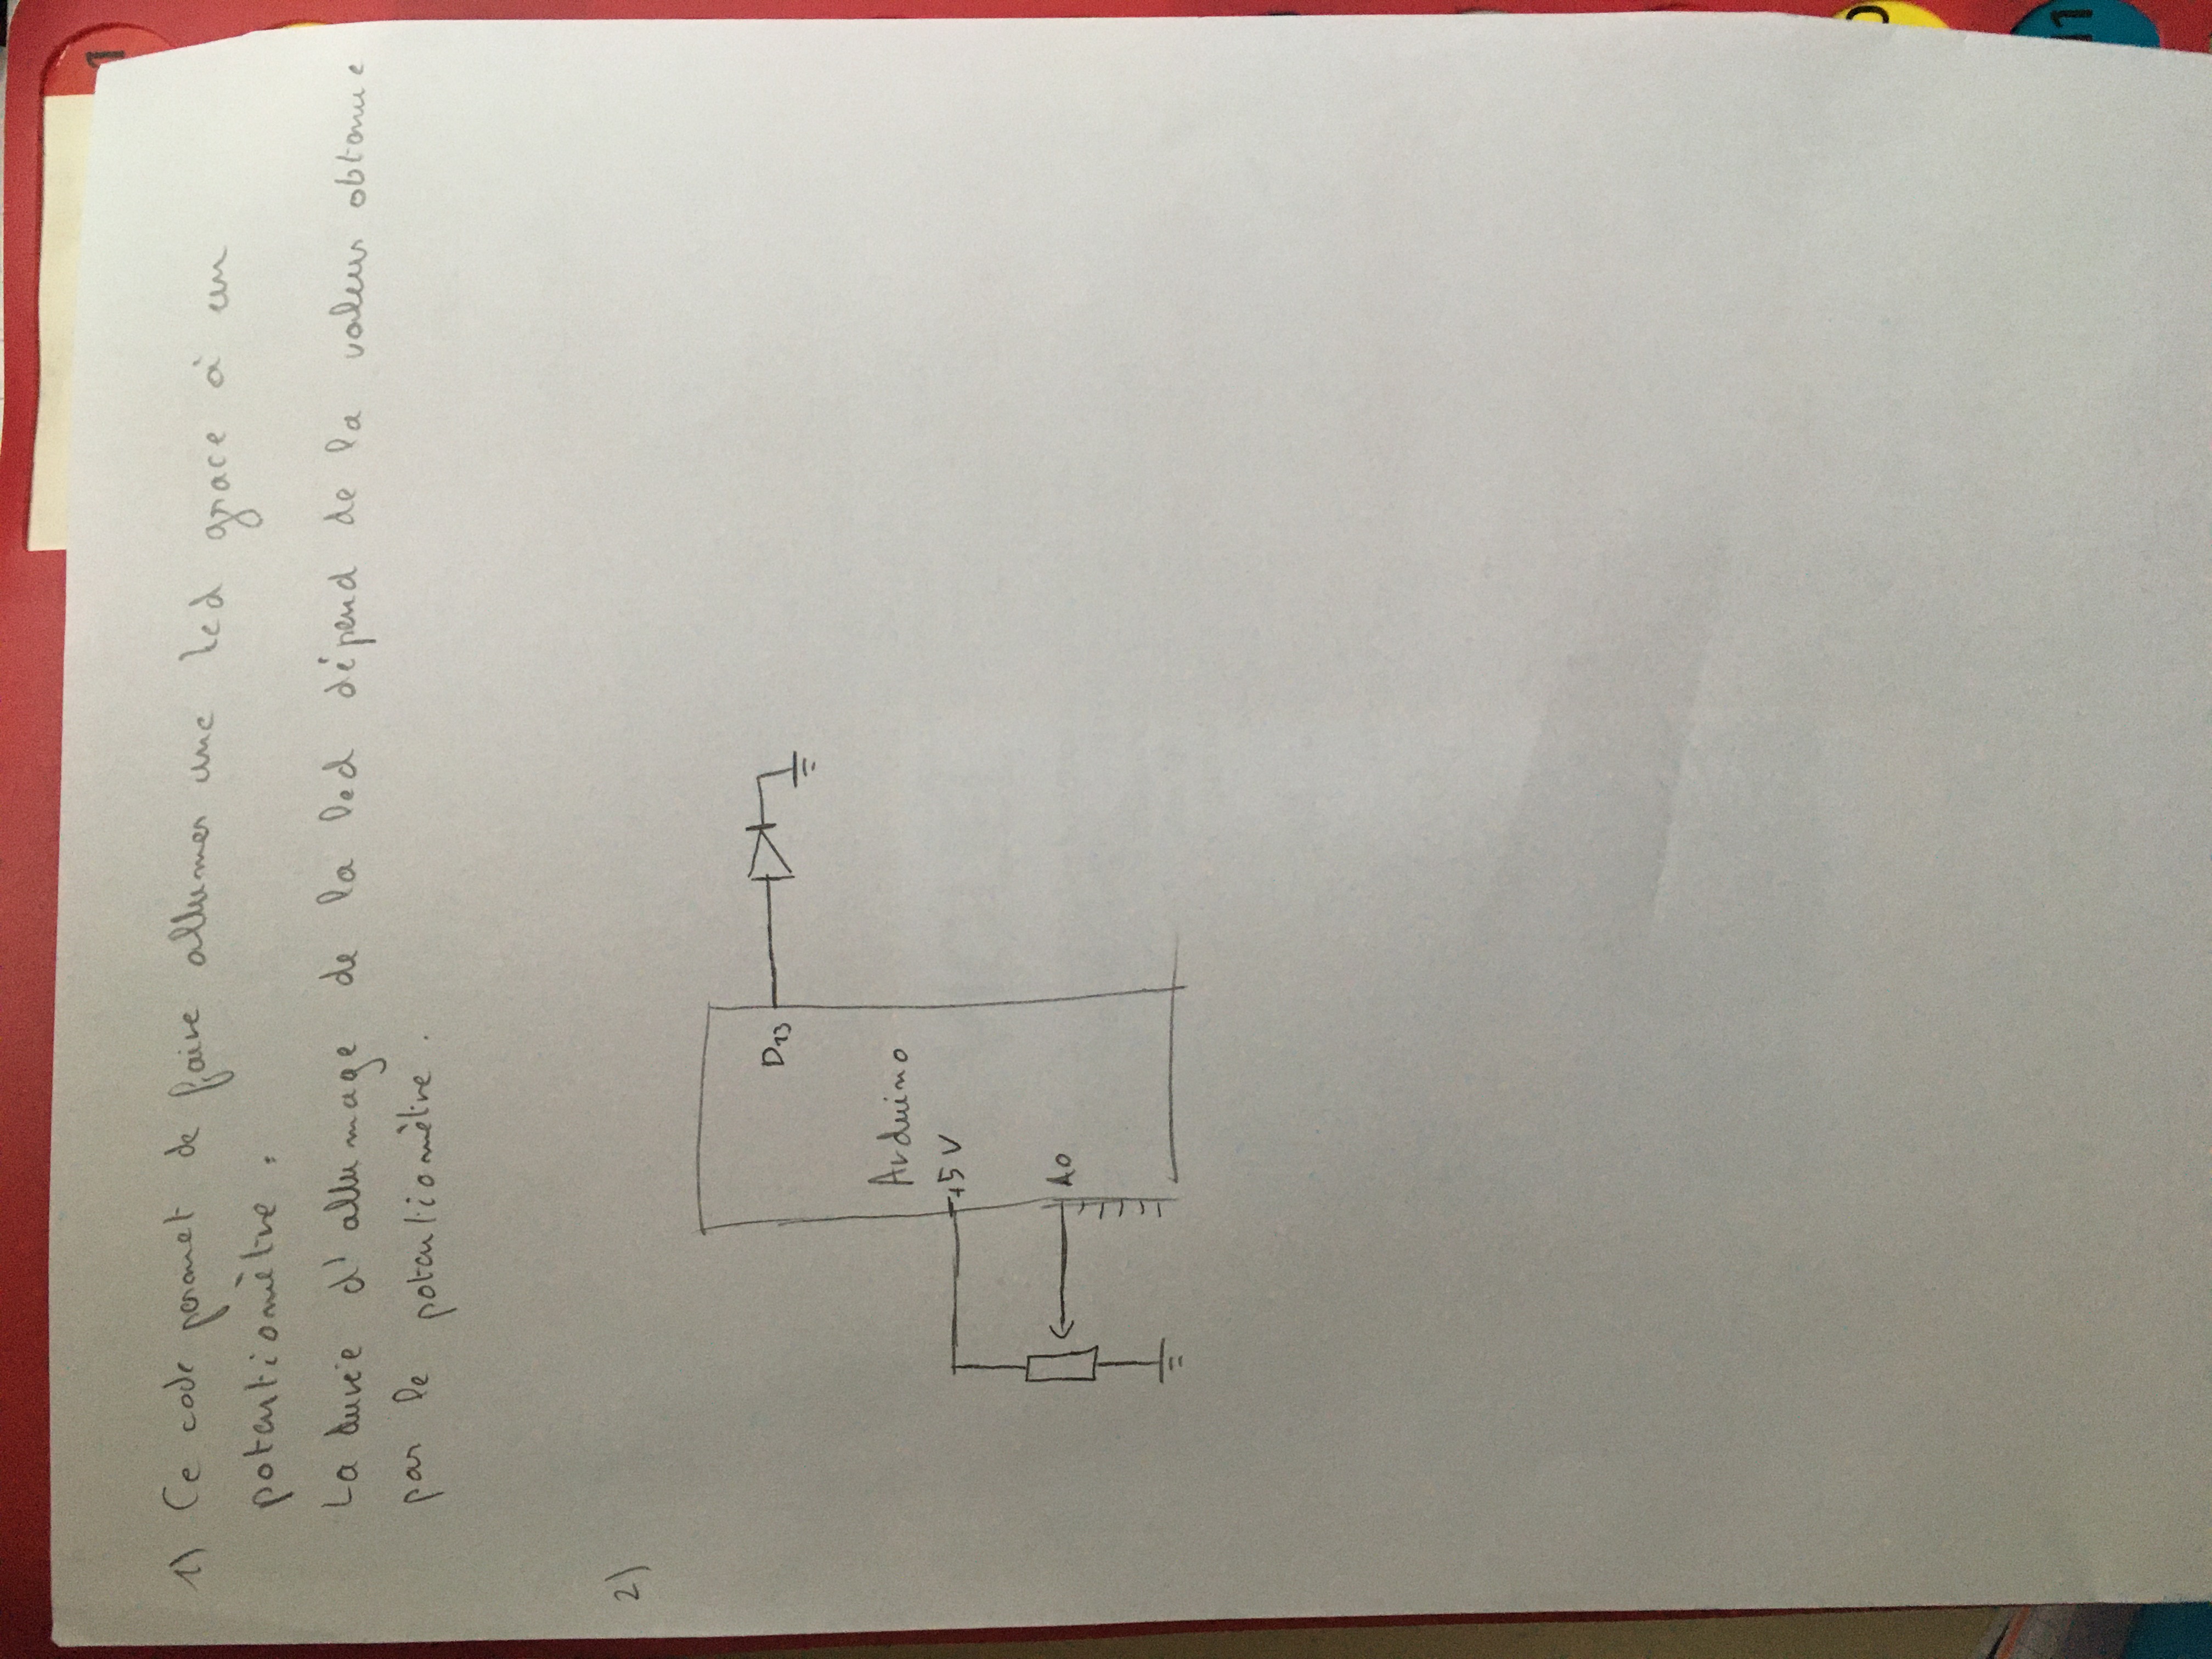 1) Ce code permet de faire allumer une led grace à un
potentiomètre.
La durée d'allumage de la led dépend de la valeur obtenue
par le potentiomètre.
2)
D13
Arduino
+5V
A0
1
0
11